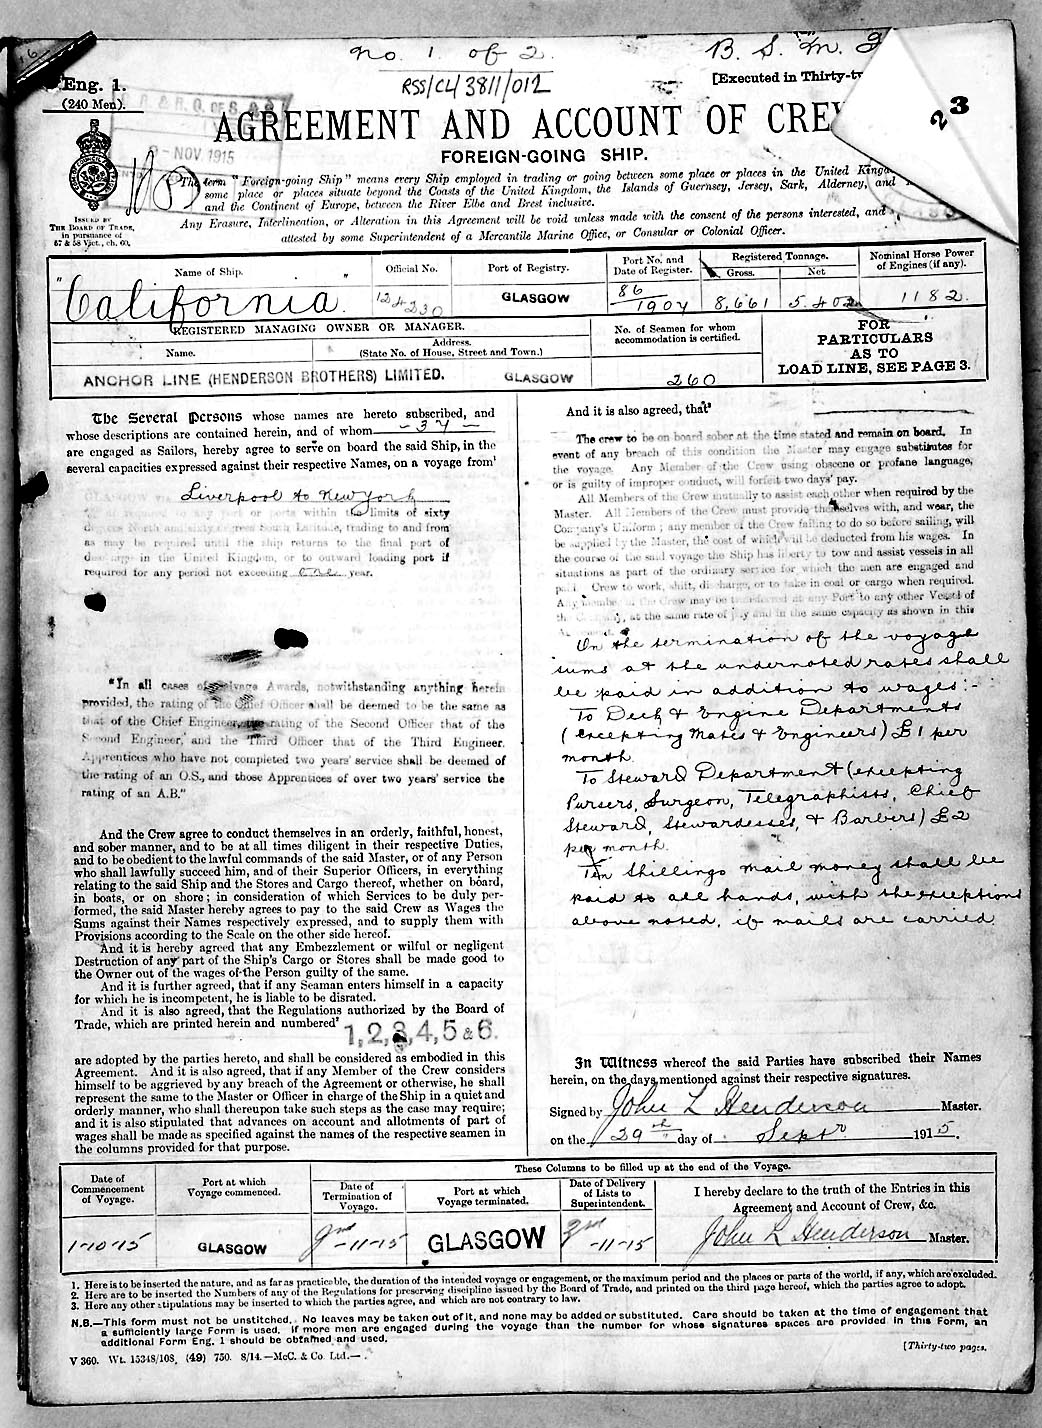 No. 1 of 2.
B. S. M.
RSS/CL/3811/012
Eng. 1.
(240 Men).
[Executed in Thirty-tw
23
NOV 1915
AGREEMENT AND ACCOUNT OF CREW
FOREIGN-GOING SHIP.
The term "Foreign-going Ship" means every Ship employed in trading or going between some place or places in the United Kingdom
some place or places situate beyond the Coasts of the United Kingdom, the Islands of Guernsey, Jersey, Sark, Alderney, and
and the Continent of Europe, between the River Elbe and Brest inclusive.
Any Erasure, Interlineation, or Alteration in this Agreement will be void unless made with the consent of the persons interested, and
attested by some Superintendent of a Mercantile Marine Office, or Consular or Colonial Officer.
ISSUED BY
THE BOARD OF TRADE,
in pursuance of
57 & 58 Vict., ch. 60,
Name of Ship.
Official No.
Port of Registry.
Port No. and
Date of Register.
Registered Tonnage.
Gross.
Net
Nominal Horse Power
of Engines (if any).
"California"
124230
GLASGOW
86
1907
8,661
5,402
1182
REGISTERED MANAGING OWNER OR MANAGER.
Name.
Address.
(State No. of House, Street and Town.)
No. of Seamen for whom
accommodation is certified.
FOR
PARTICULARS
AS TO
LOAD LINE, SEE PAGE 3.
ANCHOR LINE (HENDERSON BROTHERS) LIMITED.
GLASGOW
260
The Several Persons whose names are hereto subscribed, and
whose descriptions are contained herein, and of whom - 37 -
are engaged as Sailors, hereby agree to serve on board the said Ship, in the
several capacities expressed against their respective Names, on a voyage from¹
Liverpool to New York
any port or ports within the limits of sixty
degrees North and sixty degrees South Latitude, trading to and from
as may be required until the ship returns to the final port of
discharge in the United Kingdom, or to outward loading port if
required for any period not exceeding one year.
"In all cases of Salvage Awards, notwithstanding anything herein
provided, the rating of the Chief Officer shall be deemed to be the same as
that of the Chief Engineer, the rating of the Second Officer that of the
Second Engineer, and the Third Officer that of the Third Engineer.
Apprentices who have not completed two years' service shall be deemed of
the rating of an O.S., and those Apprentices of over two years' service the
rating of an A.B."
And the Crew agree to conduct themselves in an orderly, faithful, honest,
and sober manner, and to be at all times diligent in their respective Duties,
and to be obedient to the lawful commands of the said Master, or of any Person
who shall lawfully succeed him, and of their Superior Officers, in everything
relating to the said Ship and the Stores and Cargo thereof, whether on board,
in boats, or on shore; in consideration of which Services to be duly per-
formed, the said Master hereby agrees to pay to the said Crew as Wages the
Sums against their Names respectively expressed, and to supply them with
Provisions according to the Scale on the other side hereof.
And it is hereby agreed that any Embezzlement or wilful or negligent
Destruction of any part of the Ship's Cargo or Stores shall be made good to
the Owner out of the wages of the Person guilty of the same.
And it is further agreed, that if any Seaman enters himself in a capacity
for which he is incompetent, he is liable to be disrated.
And it is also agreed, that the Regulations authorized by the Board of
Trade, which are printed herein and numbered²
1, 2, 3, 4, 5 & 6.
are adopted by the parties hereto, and shall be considered as embodied in this
Agreement. And it is also agreed, that if any Member of the Crew considers
himself to be aggrieved by any breach of the Agreement or otherwise, he shall
represent the same to the Master or Officer in charge of the Ship in a quiet and
orderly manner, who shall thereupon take such steps as the case may require;
and it is also stipulated that advances on account and allotments of part of
wages shall be made as specified against the names of the respective seamen in
the columns provided for that purpose.
And it is also agreed, that³
The crew to be on board sober at the time stated and remain on board. In
event of any breach of this condition the Master may engage substitutes for
the voyage. Any Member of the Crew using obscene or profane language,
or is guilty of improper conduct, will forfeit two days' pay.
All Members of the Crew mutually to assist each other when required by the
Master. All Members of the Crew must provide themselves with, and wear, the
Company's Uniform; any member of the Crew failing to do so before sailing, will
be supplied by the Master, the cost of which will be deducted from his wages. In
the course of the said voyage the Ship has liberty to tow and assist vessels in all
situations as part of the ordinary service for which the men are engaged and
paid. Crew to work, shift, discharge, or to take in coal or cargo when required.
Any member of the Crew may be transferred at any Port to any other Vessel of
the Company, at the same rate of pay and in the same capacity as shown in this
On the termination of the voyage
sums at the undernoted rates shall
be paid in addition to wages:-
To Deck & Engine Departments
(excepting Mates & Engineers) £1 per
month.
To Steward Department (excepting
Pursers, Surgeon, Telegraphists, Chief
Steward, Stewardesses, & Barbers) £2
per month.
Ten Shillings mail money shall be
paid to all hands, with the exceptions
above noted, if mails are carried.
In Witness whereof the said Parties have subscribed their Names
herein, on the days mentioned against their respective signatures.
Signed by John L Henderson Master.
on the 29th day of Septr 1915.
These Columns to be filled up at the end of the Voyage.
Date of
Commencement
of Voyage.
Port at which
Voyage commenced.
Date of
Termination of
Voyage.
Port at which
Voyage terminated.
Date of Delivery
of Lists to
Superintendent.
I hereby declare to the truth of the Entries in this
Agreement and Account of Crew, &c.
1-10-15
GLASGOW
2nd-11-15
GLASGOW
2nd-11-15
John L Henderson Master.
1. Here is to be inserted the nature, and as far as practicable, the duration of the intended voyage or engagement, or the maximum period and the places or parts of the world, if any, which are excluded.
2. Here are to be inserted the Numbers of any of the Regulations for preserving discipline issued by the Board of Trade, and printed on the third page hereof, which the parties agree to adopt.
3. Here any other stipulations may be inserted to which the parties agree, and which are not contrary to law.
N.B.—This form must not be unstitched. No leaves may be taken out of it, and none may be added or substituted. Care should be taken at the time of engagement that
a sufficiently large Form is used. If more men are engaged during the voyage than the number for whose signatures spaces are provided in this Form, an
additional Form Eng. 1 should be obtained and used.
V 360. Wt. 15348/108. (49) 750. 8/14.—McC. & Co. Ltd.—
[Thirty-two pages.